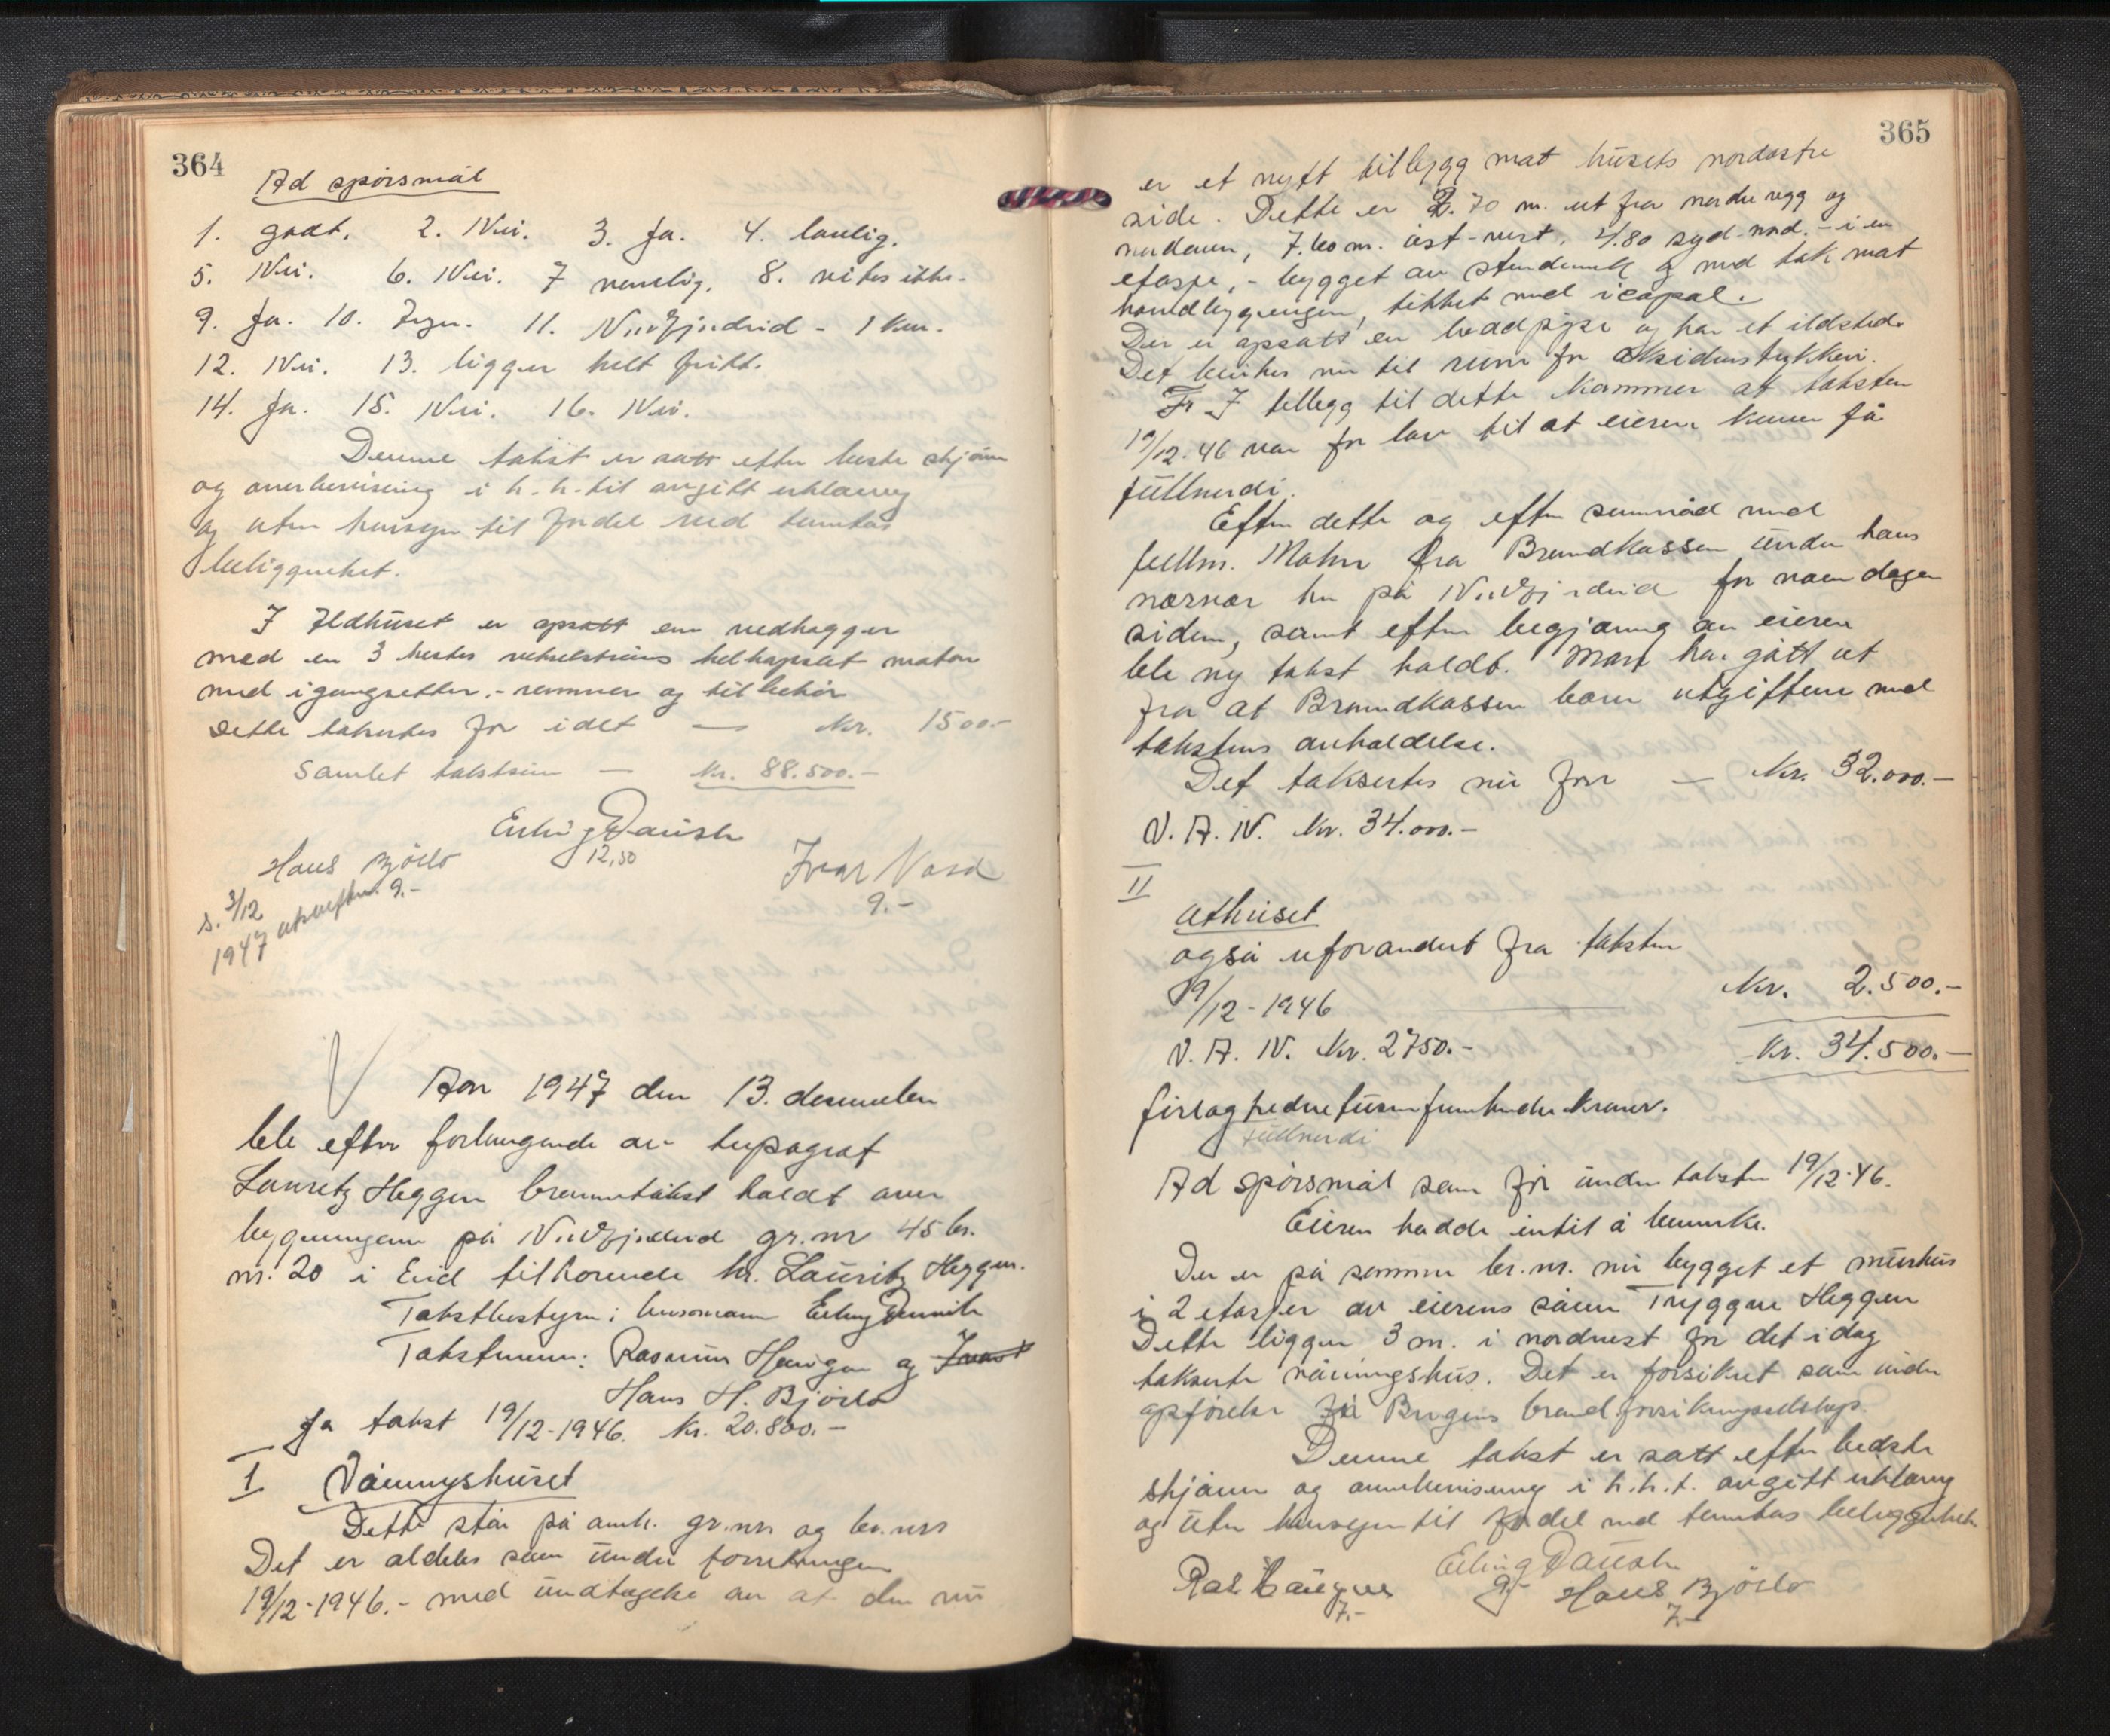 364
Ad spørsmål
1. godt. 2. Nei. 3. Ja. 4. lovlig.
5. Nei. 6. Nei. 7 vanlig. 8. vites ikke.
9. Ja. 10. Ingen. 11. Nordfjordeid - 1 km.
12. Nei. 13. ligger helt fritt.
14. Ja. 15. Nei. 16. Nei.
Denne takst er satt efter beste skjønn
og overbevisning i h.h. til avgitt erklæring
og uten hensyn til fordel ved tomtas
beliggenhet.
I Ildhuset er opsatt en vedhogger
med en 3 hestes vekselstrøms helkapslet motor
med igangsetter, - remmer og tilbehør
Dette takseres for idet — Kr. 1500.-
Samlet takstsum — Kr. 88.500.-
Erling Dausch
12,50
Hans Bjørlo
9.-
Ivar Nord
9.-
s. 3/12
1947 utskriften
Aar 1947 den 13. desember
ble efter forlangende av typograf
Lauritz Heggen branntakst holdt over
bygningene på Nordfjordeid gr.nr 45 br.
nr. 20 i Eid tilhørende hr. Lauritz Heggen.
Takstbestyrer: lensmann Erling
Takstmenn: Rasmus Haugen og Ivar
Hans H. Bjørlo
Ja takst 19/12-1946. Kr. 20.800.-
I Våningshuset
Dette står på anh. gr.nr og br.nr
Det er aldeles som under forretningen
19/12-1946.- med undtagelse av at der nu
365
er et nytt tilbygg mot husets nordøstre
side. Dette er 2.70 m. ut fra nordre vegg og
nordover, 7.60 m. øst-vest, 4.80 syd-nord. - i en
etasje, - bygget av stenderverk og med tak mot
hovedbygningen, tekket med icopal.
Der er opsatt en pipe og har et ildsted.
Det brukes nu til rum for
I tillegg til dette kommer at taksten
19/12-46 var for lav til at eieren kunne få
fullverdi.
Efter dette og efter samråd med
fullm. Mohn fra Brandkassen under hans
nærvær her på Nordfjordeid for noen dager
siden, samt efter begjæring av eieren
ble ny takst holdt. Man har gått ut
fra at Brandkassen bærer utgiftene med
takstens avholdelse.
Det takseres nu for — Kr. 32.000.-
V. A. N. Kr. 34.000.-
II
Uthuset
også uforandret fra taksten
19/12-1946 Kr. 2.500.-
V. A. N. Kr. 2750.- Kr. 34.500.-
firtogtredve tusen femhundre kroner.
fullverdi
Ad spørsmål som før under taksten 19/12-46.
Eieren hadde intet å bemerke.
Der er på samme br.nr. nu bygget et murhus
i 2 etasjer av eierens sønn Tryggve Heggen
Dette ligger 3 m. i nordvest for det i dag
takserte våningshus. Det er forsikret som under
opførelse i Bergens brandforsikringsselskap.
Denne takst er satt efter bedste
skjønn og overbevisning i h.h.t. avgitt erklæring
og uten hensyn til fordel ved tomtas beliggenhet
Erling Dausch
9.-
Ras. Haugen
7.-
Hans Bjørlo
7.-